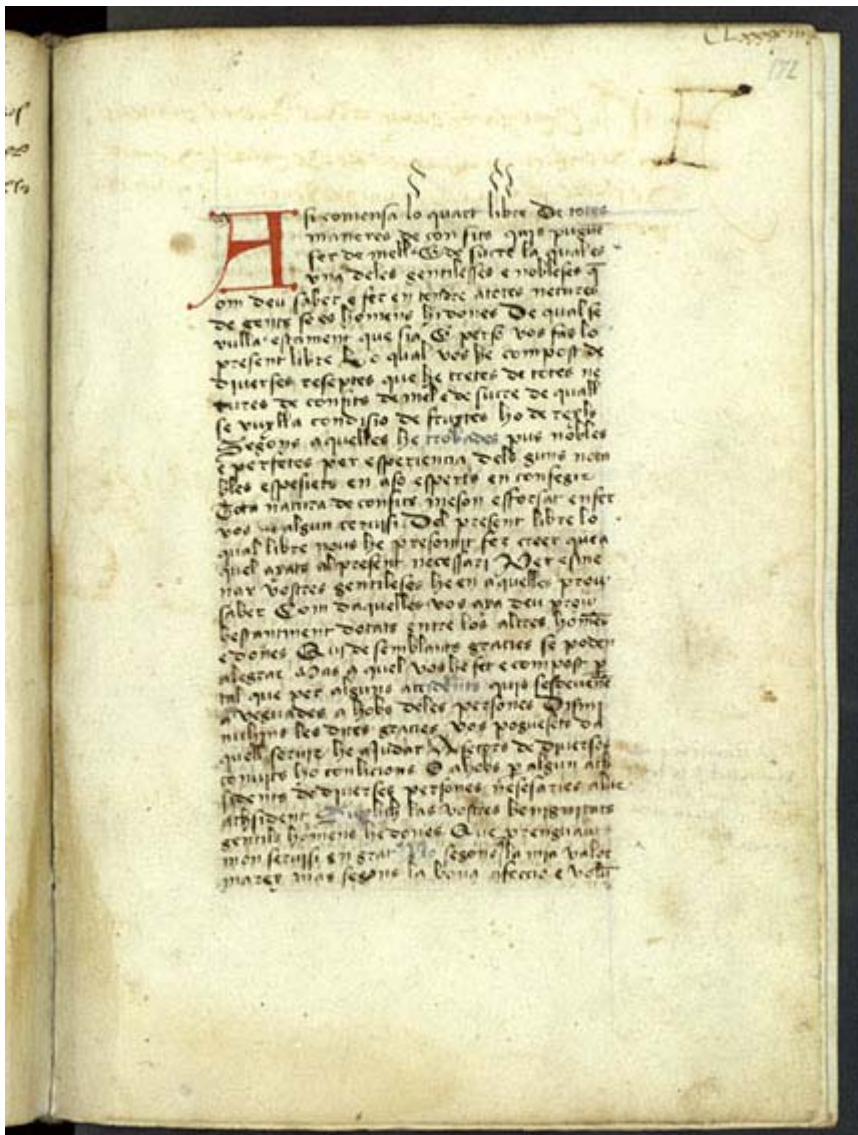 CLxxxxiiii
172
A si comensa lo quart libre De totes
maneres de confits quis pugue
fer de mell E de sucre la qual es
vna deles gentilesses e nobleses q̅
om deu saber e fer en tendre atotes natures
de gents se es homens hy dones De qual se
vulla estament que sia E perso vos fas lo
present libre Lo qual vos he compost de
diverses reseptes que he tretes de totes na
tures de confits de mel e de sucre de quall
se vuylla condisio de fruytes ho de
Segons aquelles he trobades pus nobles
e perfetes per esperiencia dels guns nota
bles espesiers en aso esperts en confegir
Tota natura de confits me son esforsat en fer
vos algun servisi Del present libre lo
qual libre nous he presomit fer creer que a
quel aiats al present necessari Per
nar vostres gentileses he en aquelles
saber Com daquelles vos aia deu
bestantment dotats entre los altres homens
e dones Qui de semblants gracies se poden
alegrar Mas a quel vos he fet e compost p̅
tal que per alguns accidents quis
a veguades a hobs deles persones
les dites gracies vos poguesets da
quell servir he ajudar de diverses
convits ho O a hobs p algun ach
sidents de diverses persones neseсaries
achsident las vostres benignitats
gentils homens he dones Que prenguau
mon servisi en grat No segons la mia valor
mas segons la bona afeccio e volū